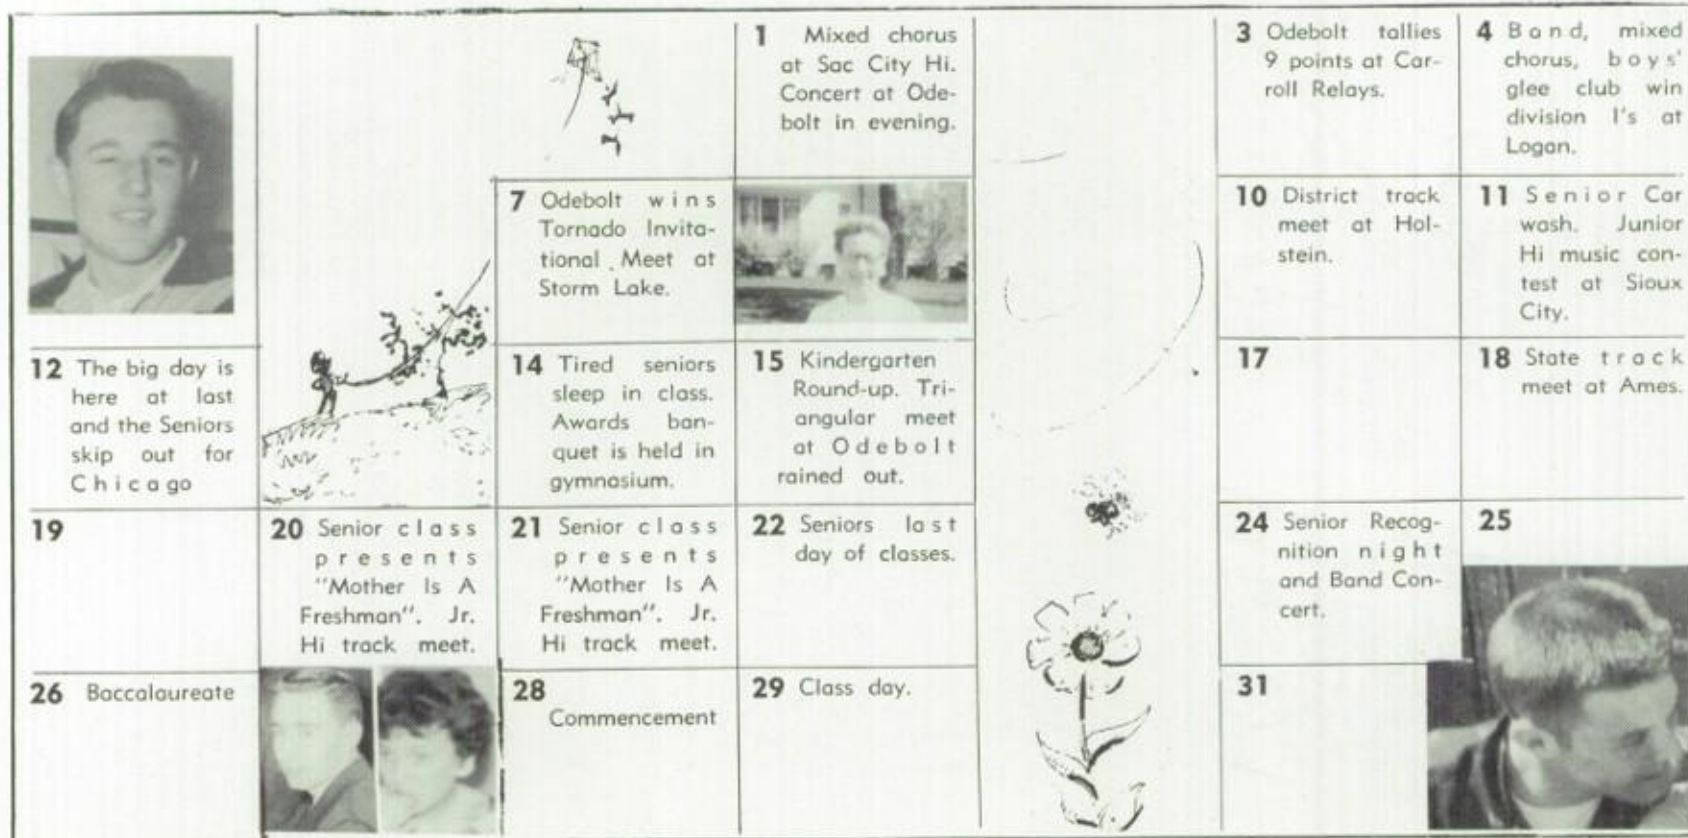 1 Mixed chorus
at Sac City Hi.
Concert at Ode-
bolt in evening.
3 Odebolt tallies
9 points at Car-
roll Relays.
4 Band, mixed
chorus, boys'
glee club win
division I's at
Logan.
7 Odebolt wins
Tornado Invita-
tional Meet at
Storm Lake.
10 District track
meet at Hol-
stein.
11 Senior Car
wash. Junior
Hi music con-
test at Sioux
City.
12 The big day is
here at last
and the Seniors
skip out for
Chicago
14 Tired seniors
sleep in class.
Awards ban-
quet is held in
gymnasium.
15 Kindergarten
Round-up. Tri-
angular meet
at Odebolt
rained out.
17
18 State track
meet at Ames.
19
20 Senior class
presents
"Mother Is A
Freshman". Jr.
Hi track meet.
21 Senior class
presents
"Mother Is A
Freshman". Jr.
Hi track meet.
22 Seniors last
day of classes.
24 Senior Recog-
nition night
and Band Con-
cert.
25
26 Baccalaureate
28
Commencement
29 Class day.
31